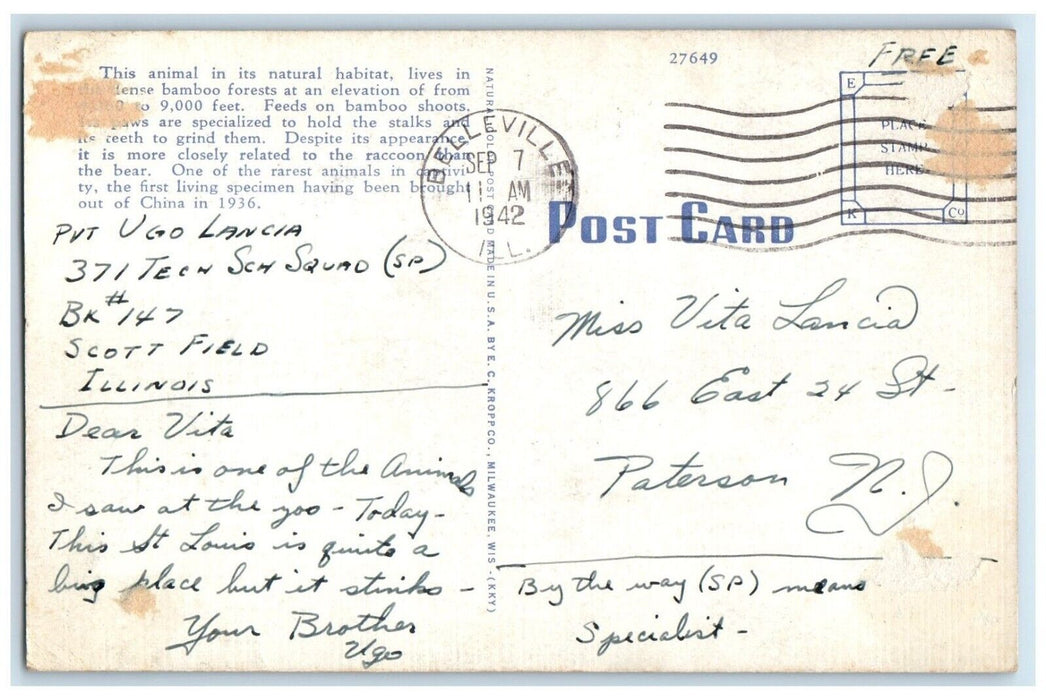 This animal in its natural habitat, lives in
dense bamboo forests at an elevation of from
to 9,000 feet. Feeds on bamboo shoots.
paws are specialized to hold the stalks and
its teeth to grind them. Despite its appearance,
it is more closely related to the raccoon than
the bear. One of the rarest animals in captivi-
ty, the first living specimen having been brought
out of China in 1936.
PVT UGO LANCIA
371 TECH SCH SQUAD (SP)
BK # 147
SCOTT FIELD
ILLINOIS
Dear Vita
This is one of the Animals
I saw at the zoo - Today -
This St Louis is quite a
big place but it stinks -
Your Brother
Ugo
POST CARD MADE IN U.S.A. BY E. C. KROPP CO., MILWAUKEE, WIS. (KKY)
BELLEVILLE
SEP 7
11 AM
1942
ILL.
27649
FREE
E
PLACE
STAMP
HERE
K
Co
POST CARD
Miss Vita Lancia
866 East 24 St -
Paterson N.J.
By the way (SP) means
Specialist -